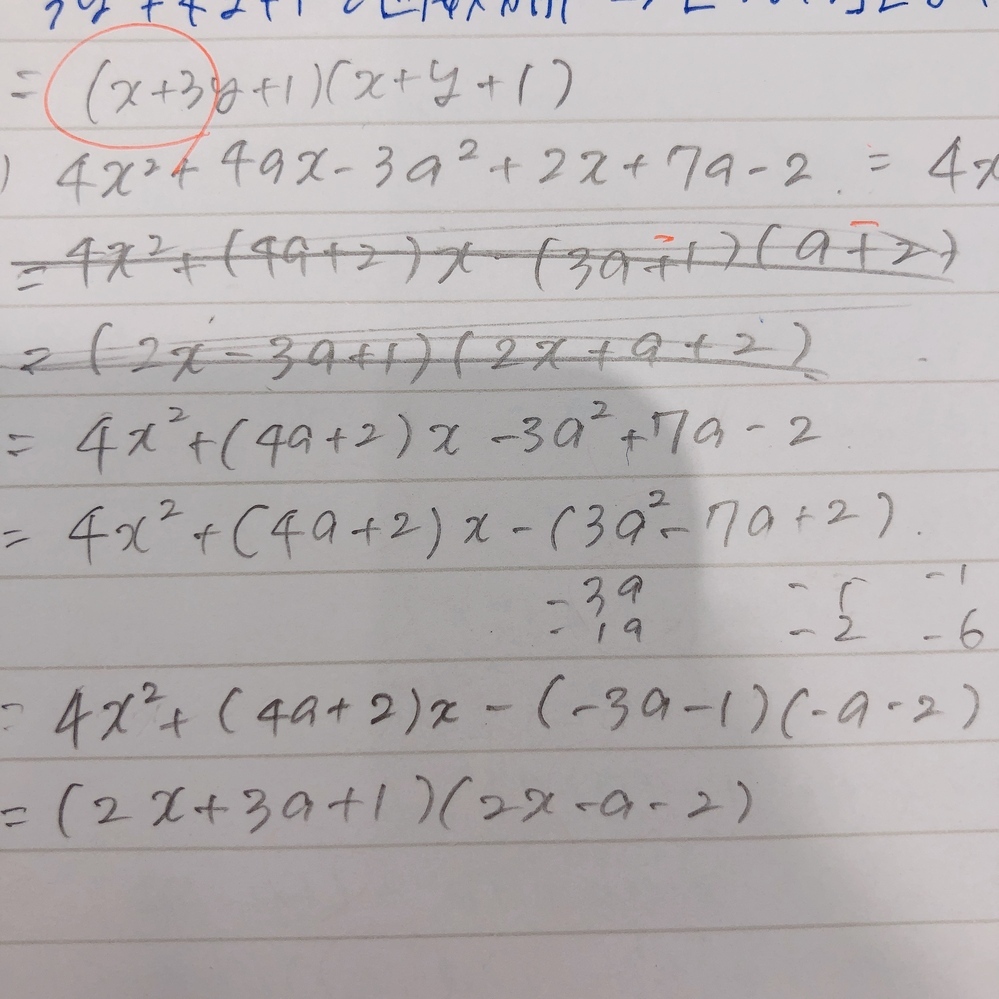 = (x+3y+1)(x+y+1)
) 4x²+4ax-3a²+2x+7a-2 = 4x
= 4x²+(4a+2)x-(3a+1)(a+2)
= (2x-3a+1)(2x+a+2)
= 4x²+(4a+2)x-3a²+7a-2
= 4x²+(4a+2)x-(3a²-7a+2)
-3a -1
-1a -2 -6
= 4x²+(4a+2)x-(-3a-1)(-a-2)
= (2x+3a+1)(2x-a-2)